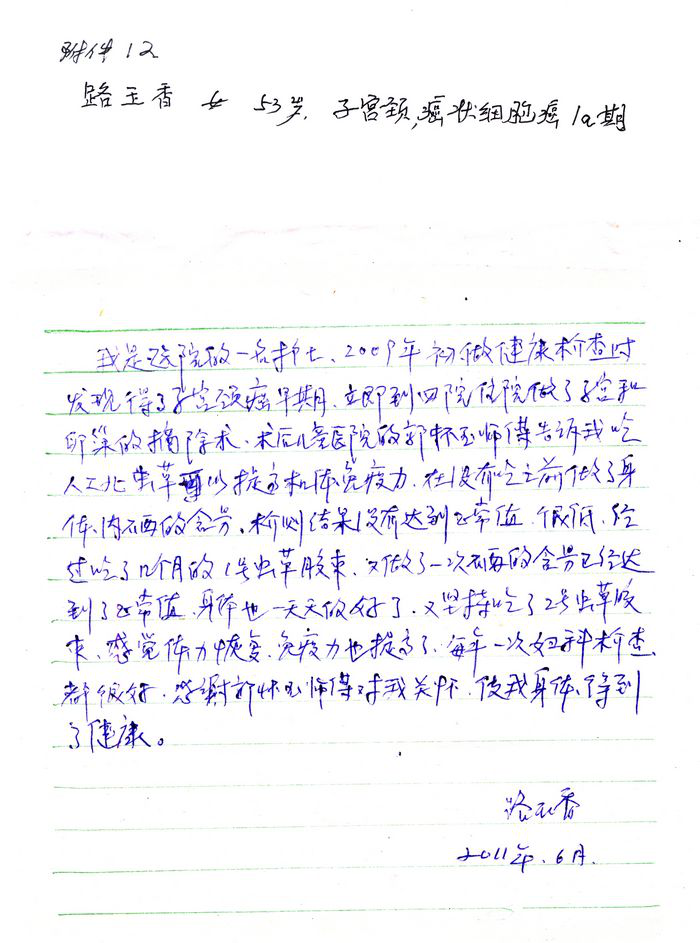 附件12
路玉香 女 53岁. 子宫颈,癌状细胞癌 1a期
我是医院的一名护士、2009年初做健康检查时
发现得了子宫颈癌早期、立即到四院住院做了子宫和
卵巢的摘除术、术后儿童医院的郭怀玉师傅告诉我吃
人工北虫草可以提高机体免疫力、在没有吃之前做了身
体内硒的含量、检测结果没有达到正常值、很低、经
过吃了几个月的1号虫草胶束、又做了一次硒的含量已经达
到了正常值、身体也一天天的好了、又坚持吃了2号虫草胶
束、感觉体力恢复、免疫力也提高了、每年一次妇科检查、
都很好、感谢郭怀玉师傅对我关怀、使我身体得到
了健康。
路玉香
2011年.6月.